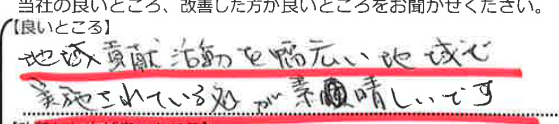 当社の良いところ、改善した方が良いところをお聞かせください。
【良いところ】
地域貢献活動を幅広い地域で
実施されている処が素晴しいです